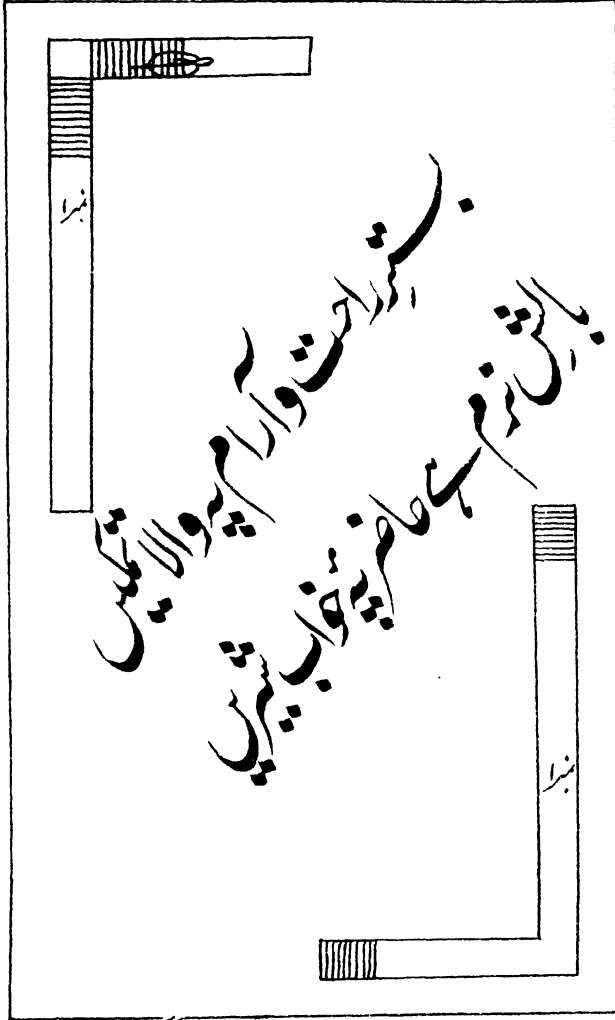 نمبر۱
بسترِ راحت و آرام پہ والا تمکیں
بالشِ نرم ہے حاضر پئے خواب شیریں
نمبر۱